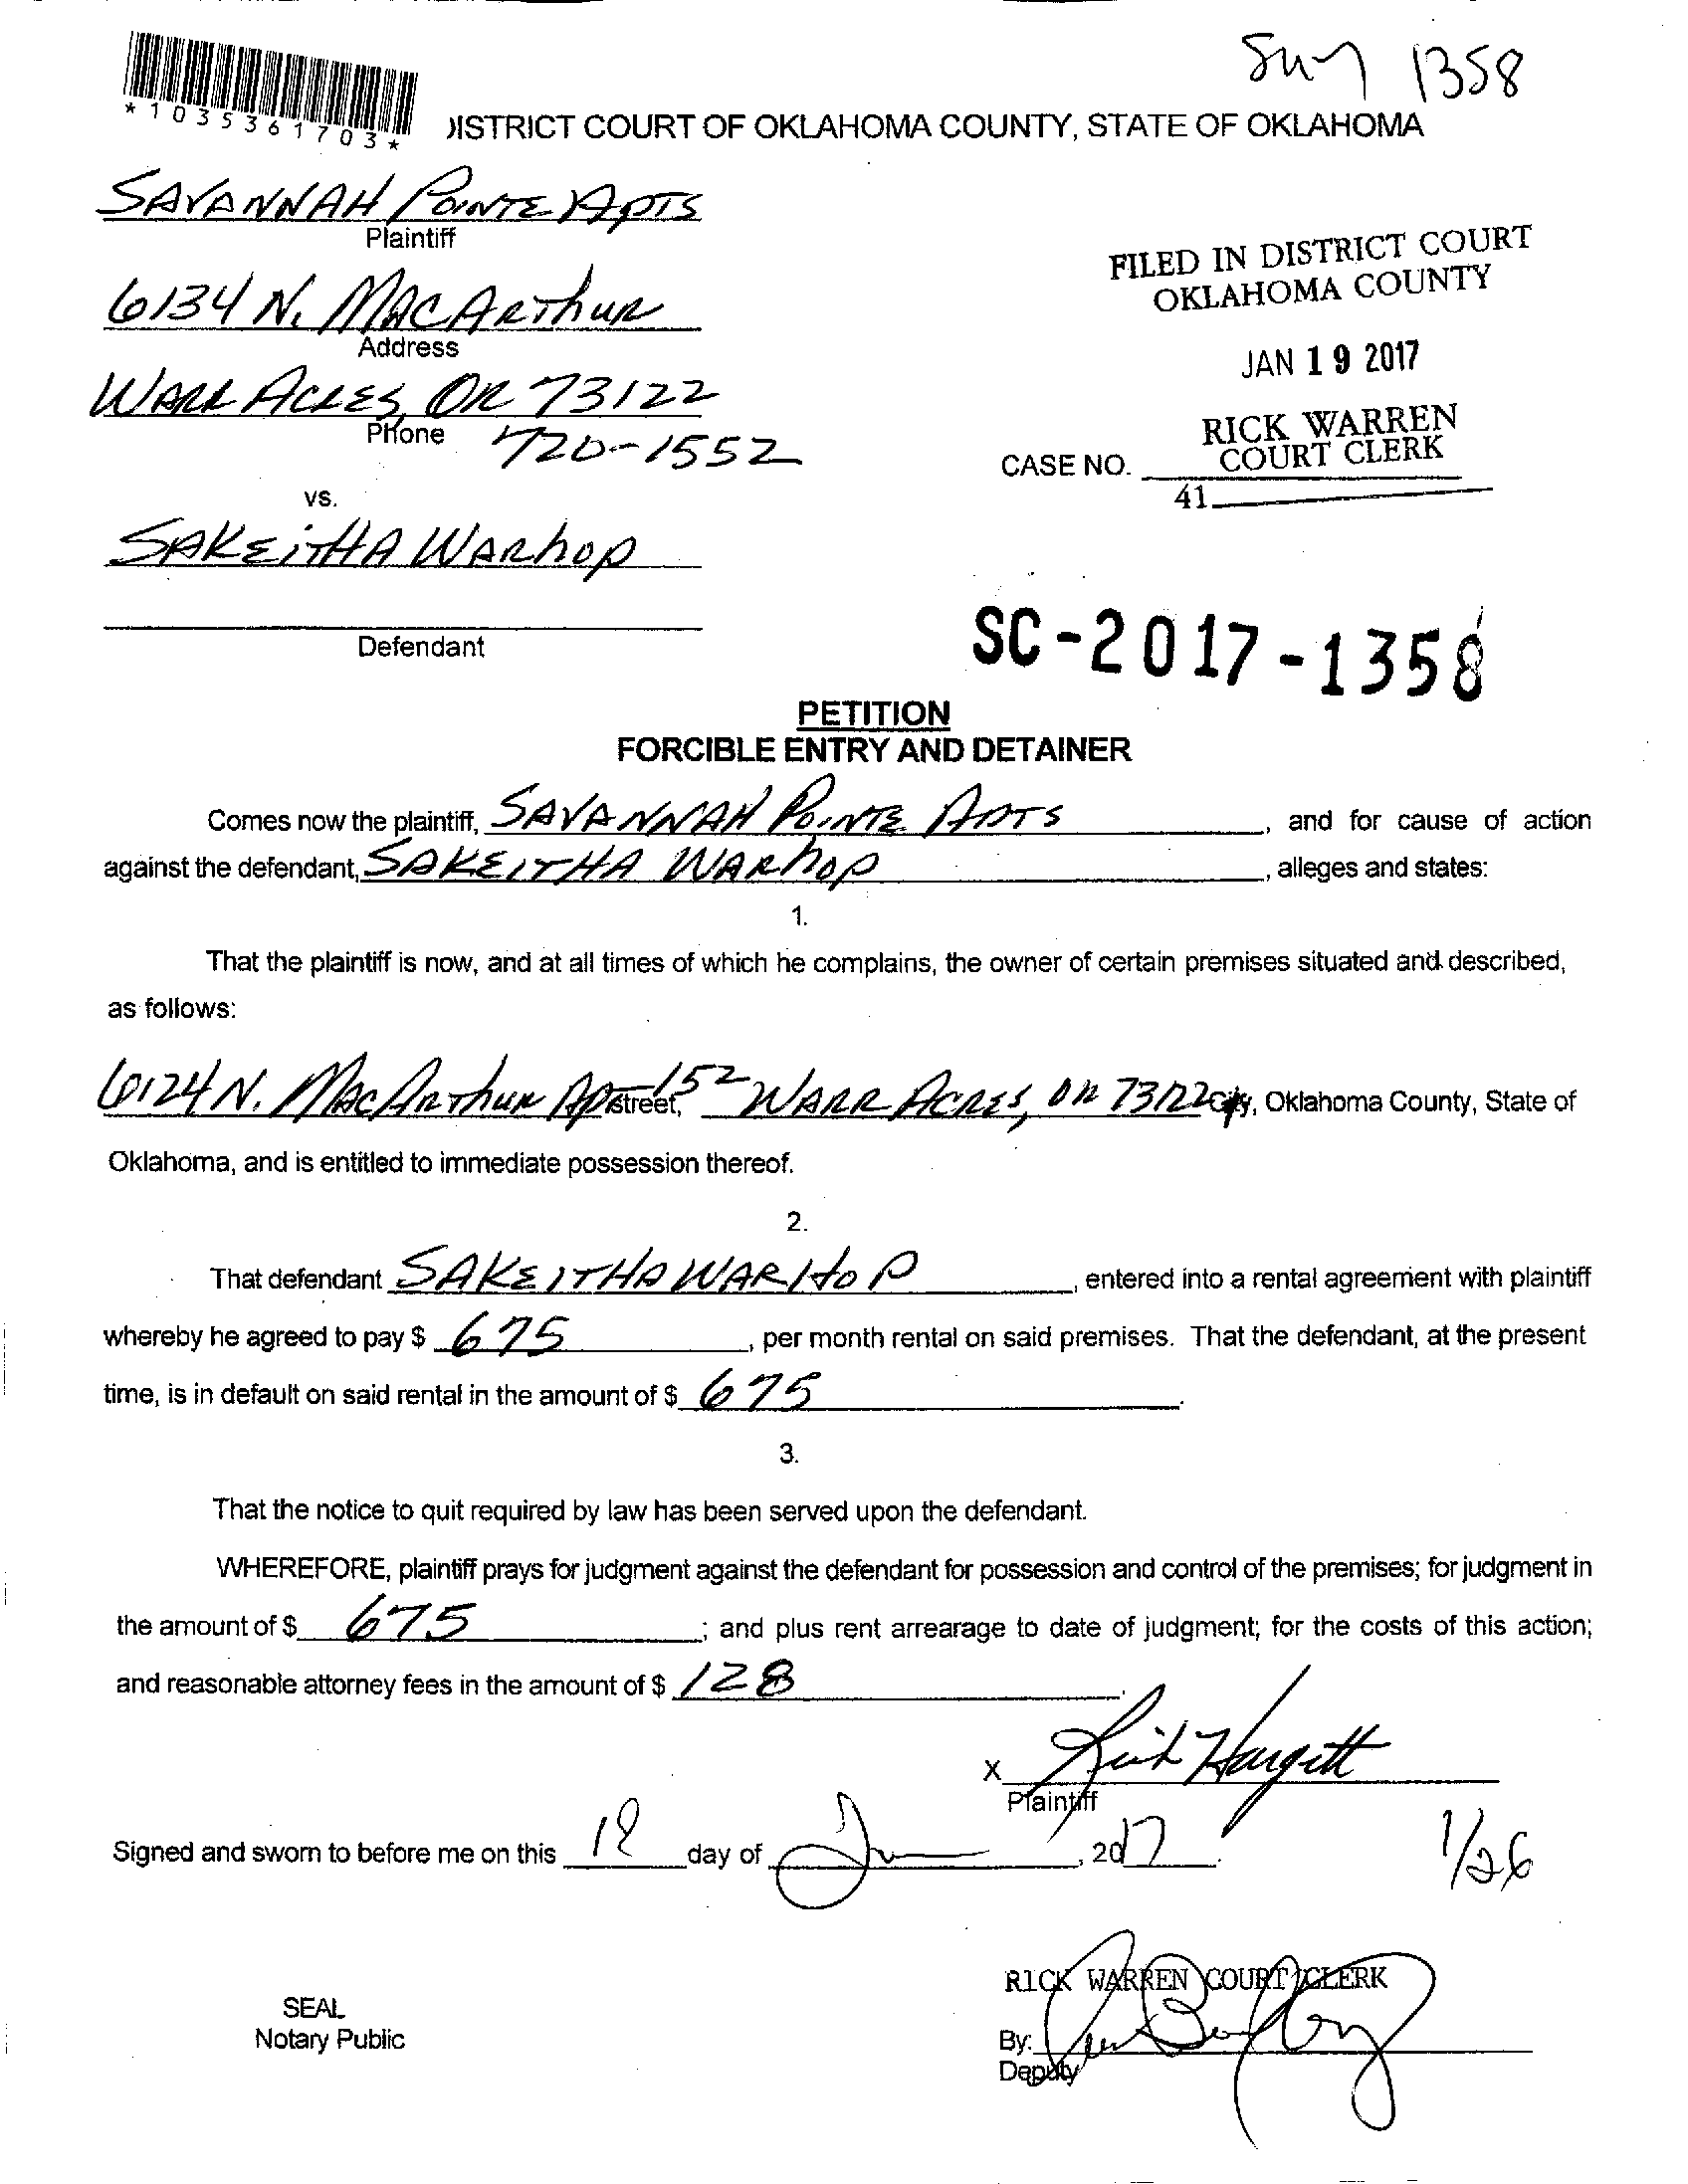 1358
*1035361703*
DISTRICT COURT OF OKLAHOMA COUNTY, STATE OF OKLAHOMA
SAVANNAH POINTE APTS
Plaintiff
6134 N. MACARTHUR
Address
WARR ACRES, OK 73122
Phone 720-1552
FILED IN DISTRICT COURT
OKLAHOMA COUNTY
JAN 19 2017
RICK WARREN
COURT CLERK
CASE NO.
41
vs.
SAKEITHA WARHOP
Defendant
SC-2017-1358
PETITION
FORCIBLE ENTRY AND DETAINER
Comes now the plaintiff, SAVANNAH POINTE APTS, and for cause of action
against the defendant, SAKEITHA WARHOP, alleges and states:
1.
That the plaintiff is now, and at all times of which he complains, the owner of certain premises situated and described,
as follows:
6124 N. MACARTHUR APT 152 street, WARR ACRES, OK 73122 City, Oklahoma County, State of
Oklahoma, and is entitled to immediate possession thereof.
2.
That defendant SAKEITHA WARHOP, entered into a rental agreement with plaintiff
whereby he agreed to pay $ 675, per month rental on said premises. That the defendant, at the present
time, is in default on said rental in the amount of $ 675.
3.
That the notice to quit required by law has been served upon the defendant.
WHEREFORE, plaintiff prays for judgment against the defendant for possession and control of the premises; for judgment in
the amount of $ 675; and plus rent arrearage to date of judgment; for the costs of this action;
and reasonable attorney fees in the amount of $ 128.
X Rick Hargett
Plaintiff
Signed and sworn to before me on this day of , 2017.
1/26
RICK WARREN COURT CLERK
SEAL
Notary Public
By:
Deputy